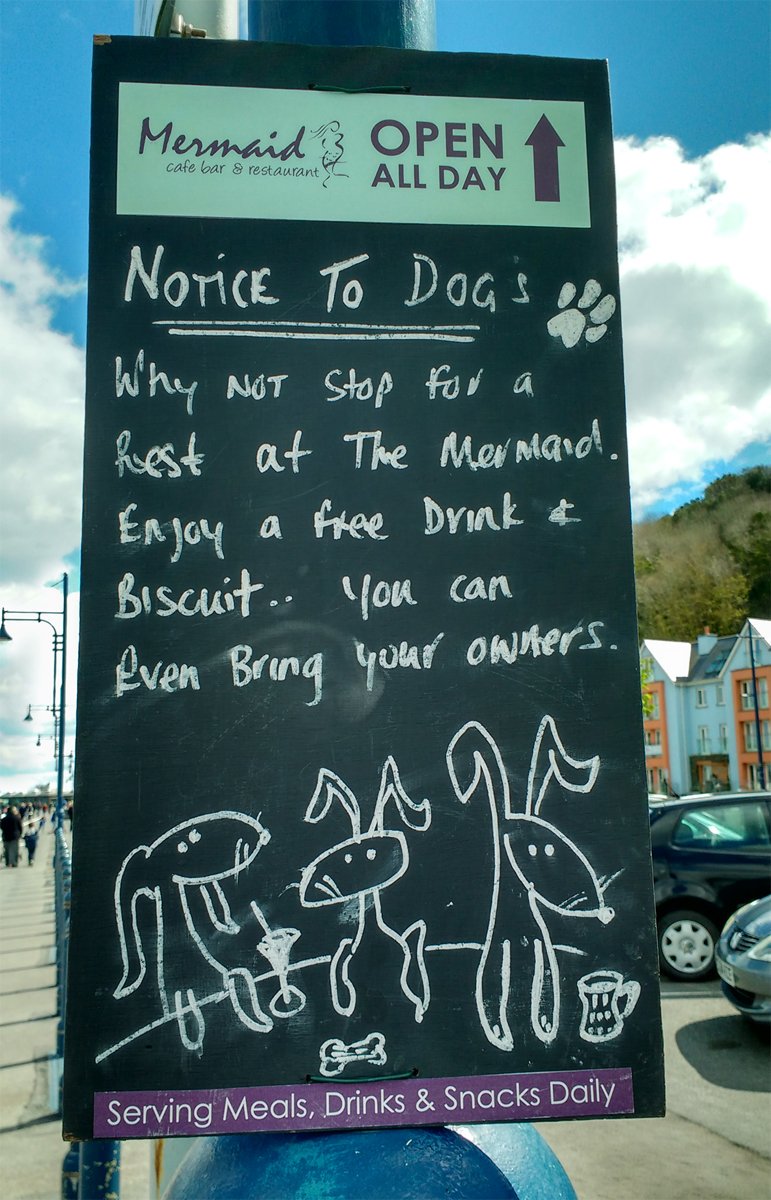 Mermaid
cafe bar & restaurant
OPEN
ALL DAY
NOTICE TO DOG'S
Why NOT Stop for a
Rest at The Mermaid.
Enjoy a free Drink &
Biscuit.. You can
Even Bring your owners.
Serving Meals, Drinks & Snacks Daily